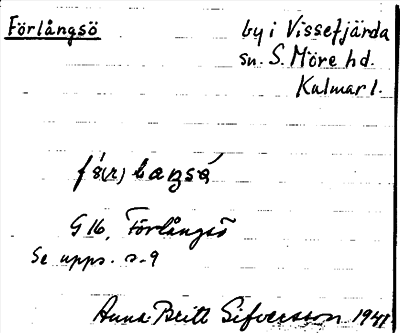 Förlångsö
by i Vissefjärda
sn. S. Möre hd.
Kalmar l.
G 16, Förlångsö
Se upps. s. 9
Anna Britt Sifversson 1941